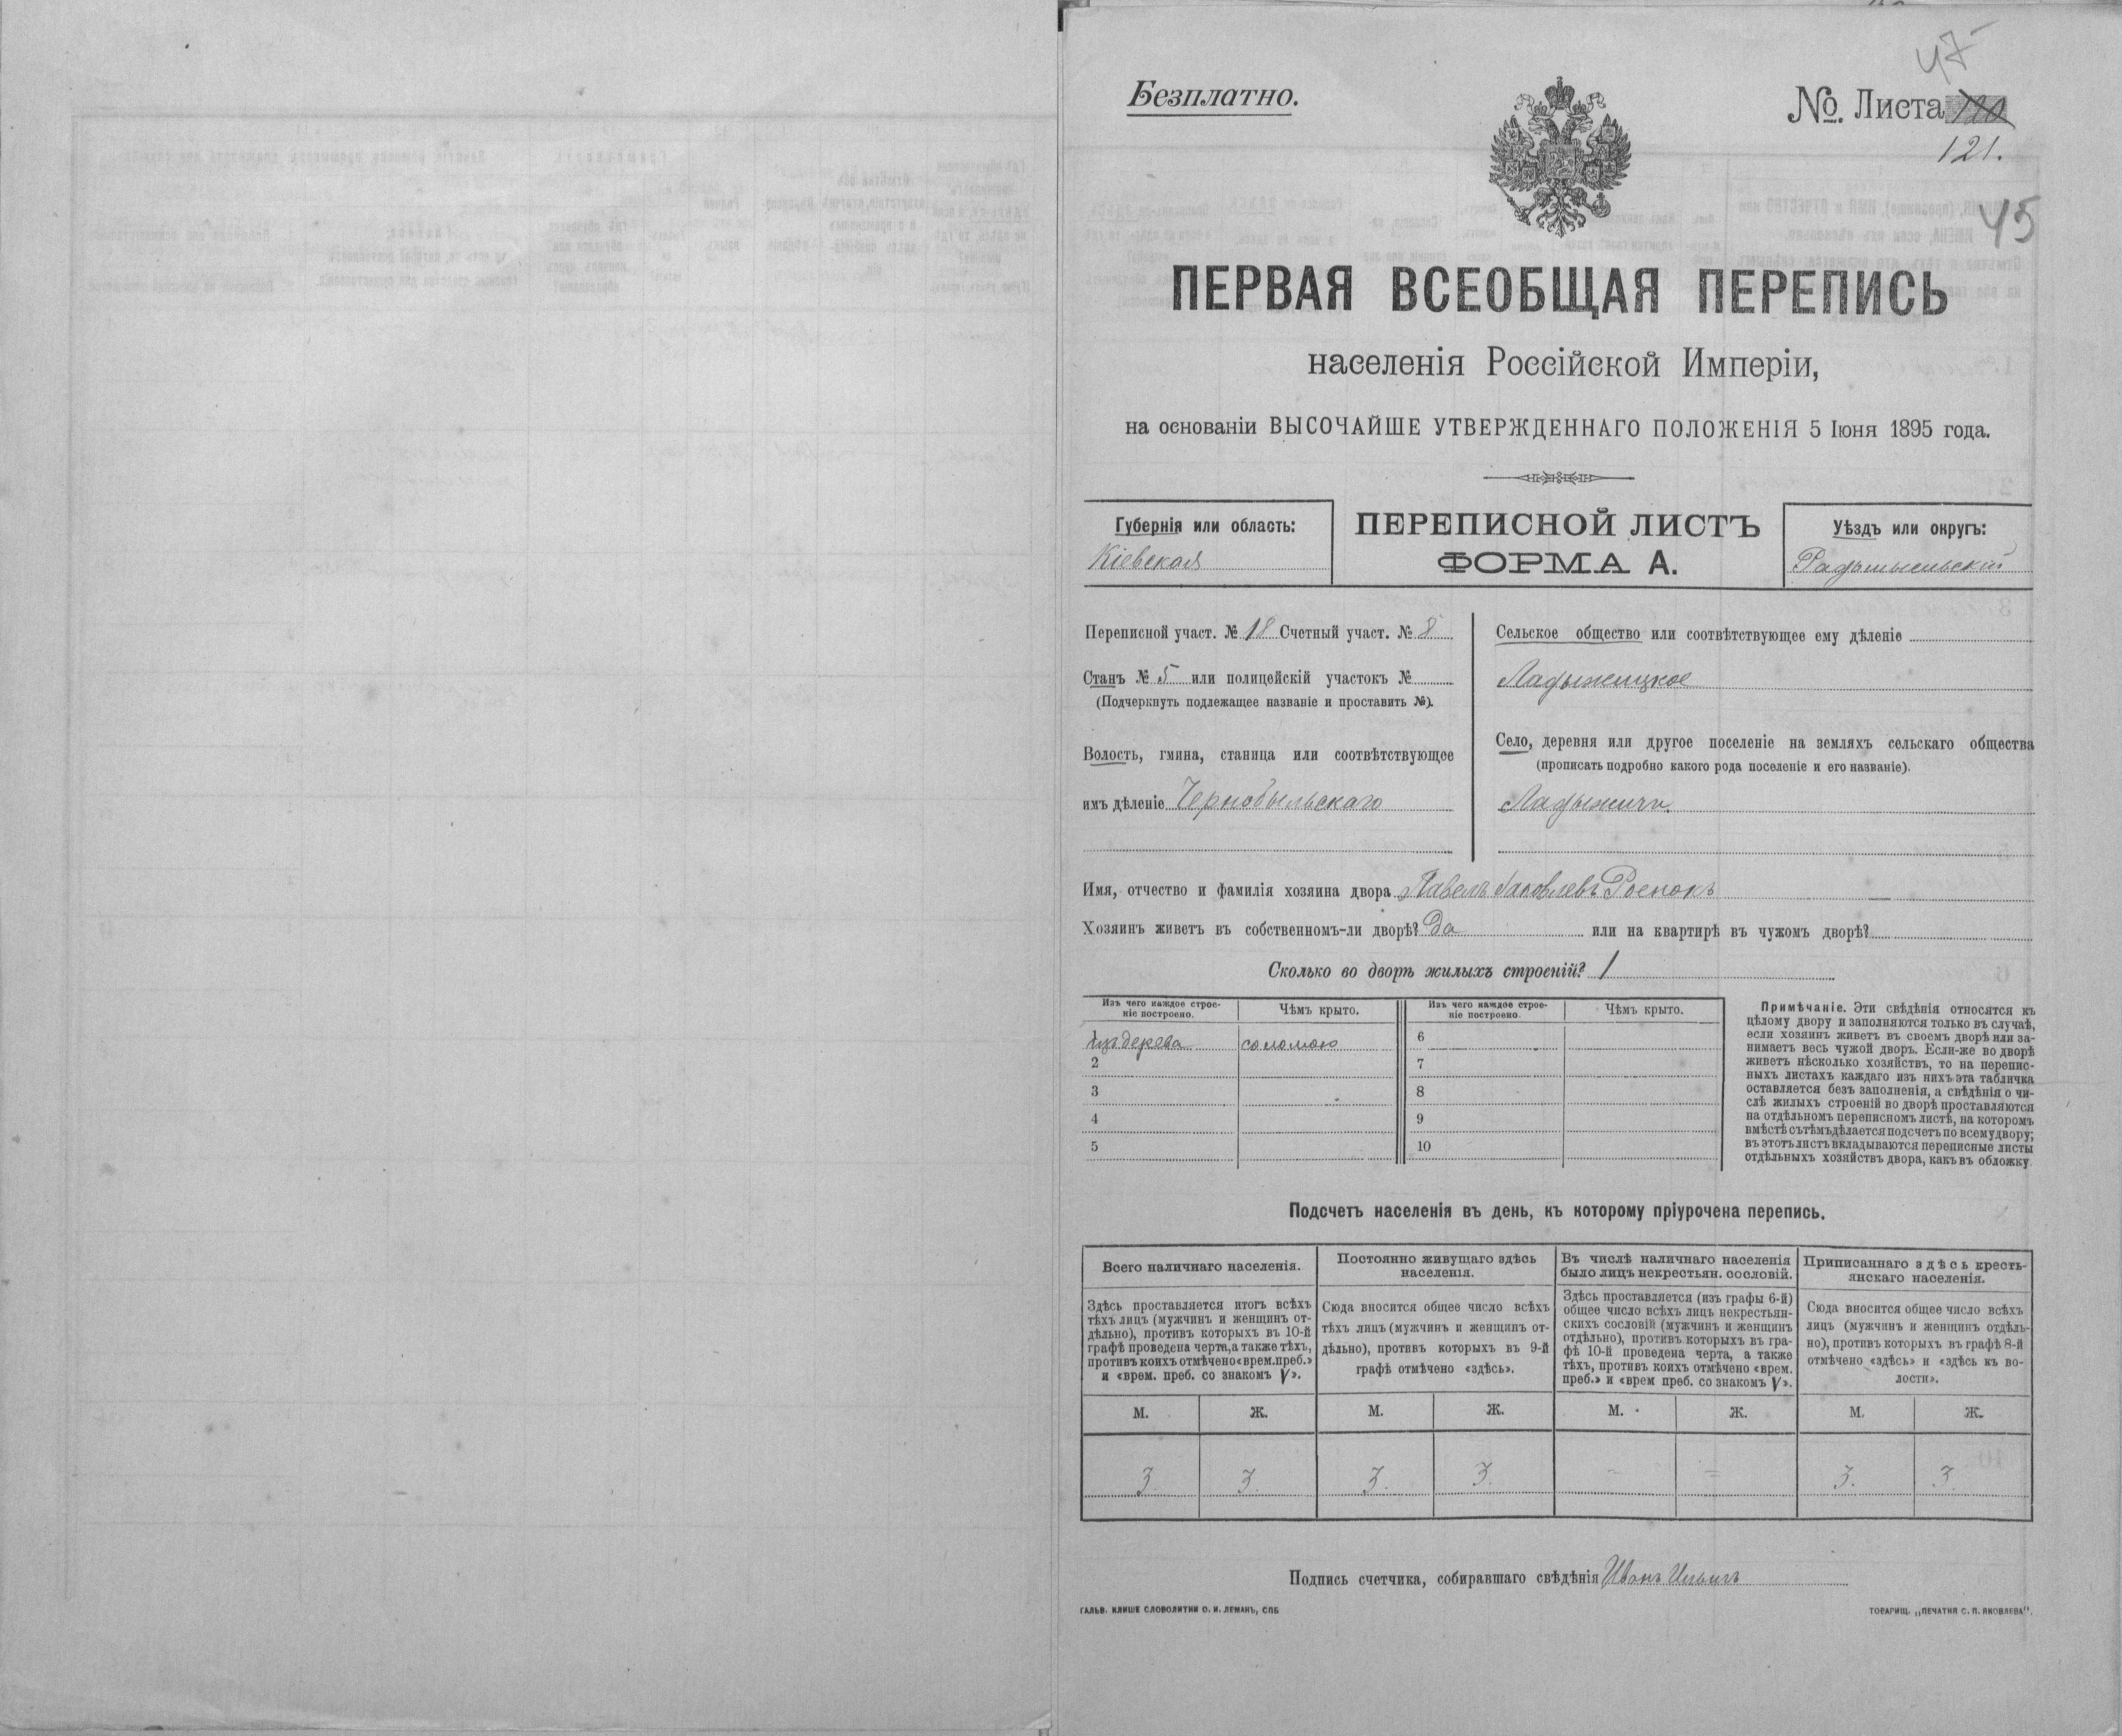 47
Безплатно.
№. Листа 120
121.
45
ПЕРВАЯ ВСЕОБЩАЯ ПЕРЕПИСЬ
населенія Россійской Имперіи,
на основаніи ВЫСОЧАЙШЕ УТВЕРЖДЕННАГО ПОЛОЖЕНІЯ 5 Іюня 1895 года.
Губернія или область:
Кіевская
ПЕРЕПИСНОЙ ЛИСТЪ
ФОРМА А.
Уѣздъ или округъ:
Радомысльскій
Переписной участ. № 18 Счетный участ. № 8
Станъ № 5 или полицейскій участокъ №
(Подчеркнуть подлежащее названіе и проставить №).
Волость, гмина, станица или соотвѣтствующее
имъ дѣленіе Чернобыльскаго
Сельское общество или соотвѣтствующее ему дѣленіе
Ладыжицкое
Село, деревня или другое поселеніе на земляхъ сельскаго общества
(прописать подробно какого рода поселеніе и его названіе).
Ладыжичи
Имя, отчество и фамилія хозяина двора Павелъ Яковлевъ Роенокъ
Хозяинъ живетъ въ собственномъ-ли дворѣ? Да или на квартирѣ въ чужомъ дворѣ?
Сколько во дворѣ жилыхъ строеній? 1
Изъ чего каждое строе-
ніе построено.
Чѣмъ крыто.
Изъ чего каждое строе-
ніе построено.
Чѣмъ крыто.
1 изъ дерева соломою 6
2 7
3 8
4 9
5 10
Примѣчаніе. Эти свѣдѣнія относятся къ
цѣлому двору и заполняются только въ случаѣ,
если хозяинъ живетъ въ своемъ дворѣ или за-
нимаетъ весь чужой дворъ. Если-же во дворѣ
живетъ нѣсколько хозяйствъ, то на перепис-
ныхъ листахъ каждаго изъ нихъ эта табличка
оставляется безъ заполненія, а свѣдѣнія о чи-
слѣ жилыхъ строеній во дворѣ проставляются
на отдѣльномъ переписномъ листѣ, на которомъ
вмѣстѣ съ тѣмъ дѣлается подсчетъ по всему двору;
въ этотъ листъ вкладываются переписные листы
отдѣльныхъ хозяйствъ двора, какъ въ обложку
Подсчетъ населенія въ день, къ которому пріурочена перепись.
Всего наличнаго населенія.
Здѣсь проставляется итогъ всѣхъ
тѣхъ лицъ (мужчинъ и женщинъ от-
дѣльно), противъ которыхъ въ 10-й
графѣ проведена черта, а также тѣхъ,
противъ коихъ отмѣчено «врем. преб.»
и «врем. преб. со знакомъ V».
Постоянно живущаго здѣсь
населенія.
Сюда вносится общее число всѣхъ
тѣхъ лицъ (мужчинъ и женщинъ от-
дѣльно), противъ которыхъ въ 9-й
графѣ отмѣчено «здѣсь».
Въ числѣ наличнаго населенія
было лицъ некрестьян. сословій.
Здѣсь проставляется (изъ графы 6-й)
общее число всѣхъ лицъ некрестьян-
скихъ сословій (мужчинъ и женщинъ
отдѣльно), противъ которыхъ въ гра-
фѣ 10-й проведена черта, а также
тѣхъ, противъ коихъ отмѣчено «врем.
преб.» и «врем преб. со знакомъ V».
Приписаннаго здѣсь кресть-
янскаго населенія.
Сюда вносится общее число всѣхъ
лицъ (мужчинъ и женщинъ отдѣль-
но), противъ которыхъ въ графѣ 8-й
отмѣчено «здѣсь» и «здѣсь къ во-
лости».
М. Ж. М. Ж. М. Ж. М. Ж.
3 3. 3. 3. = = 3. 3.
Подпись счетчика, собиравшаго свѣдѣнія Иванъ Ильичъ
ГАЛЬВ. КЛИШЕ СЛОВОЛИТНИ О. И. ЛЕМАНЪ, СПБ
ТОВАРИЩ. „ПЕЧАТНЯ С. П. ЯКОВЛЕВА".